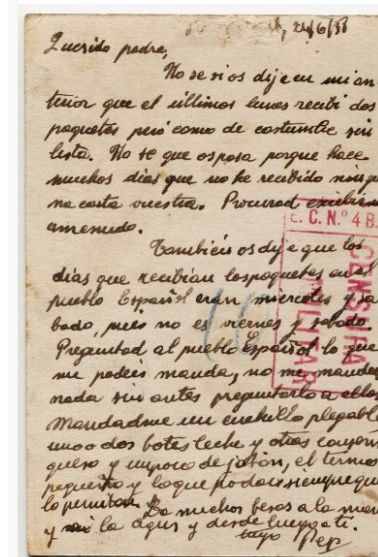 24/6/38
Querido padre,
No se si os dije en mi an
terior que el ultimos lunes recibi dos
paquetes pero como de costumbre sin
lista. No se que os pasa porque hace
muchos dias que no he recibido ningu
na carta vuestra. Procurad escribirme
amenudo.
E. C. N.º 4 B.
CENSURA
MILITAR
Tambien os dije que los
dias que recibian los paquetes en el
pueblo Español eran miercoles y sa
bado, pues no es viernes y sabado.
Preguntad al pueblo Español lo que
me podeis manda, no me mandeis
nada sin antes preguntarlo a ellos.
Mandadme un cuchillo plegable
uno o dos botes leche y otros
queso y un poco de jabón, el termos
pequeño y lo que podais siempre que
lo permitan. Da muchos besos a la
y a la y desde luego a ti.
tuyo Pep